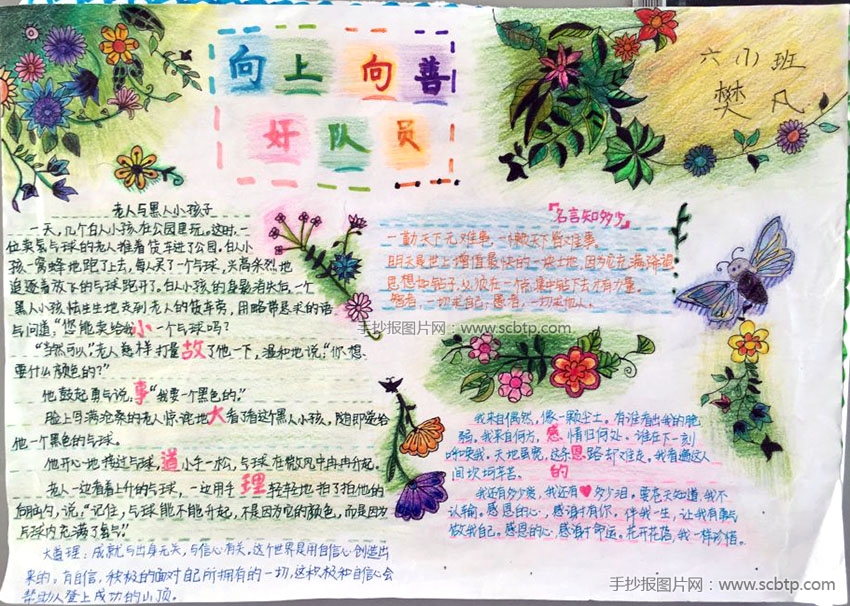 向上向善
好队员
六(1)班
樊凡
老人与黑人小孩子
一天,几个白人小孩在公园里玩。这时,一
位卖氢气球的老人推着货车进了公园。白人小
孩一窝蜂地跑了上去,每人买了一个气球,兴高采烈地
追逐着放飞的气球跑开了。白人小孩的身影消失后,一个
黑人小孩怯生生地走到老人的货车旁,用略带恳求的语
气问道,“您能卖给我一个气球吗?
“当然可以”,老人慈祥打量了他一下,温和地说,“你想
要什么颜色的?”
他鼓起勇气说,“我要一个黑色的。”
脸上写满沧桑的老人惊诧地看了看这个黑人小孩,随即递给
他一个黑色的气球。
他开心地接过气球,小手一松,气球在微风中冉冉升起。
老人一边看着上升的气球,一边用手轻轻地拍了拍他的
后脑勺,说,“记住,气球能不能升起,不是因为它的颜色,而是因为
气球内充满了氢气”
小故事大道理
大道理:成就与出身无关,与信心有关。这个世界是用自信心创造出
来的。有自信,积极的面对自己所拥有的一切,这积极和自信心会
帮助人登上成功的山顶。
『名言知多少』
一勤天下无难事,一懒天下皆难事。
明天是世上增值最快的一块土地,因为它充满希望
思想如钻子,必须在一点集中钻下去才有力量。
智者,一切求自己;愚者,一切求他人。
手抄报图片网:www.scbtp.com
我来自偶然,像一颗尘土。有谁看出我的脆
弱。我来自何方,我情归何处。谁在下一刻
呼唤我。天地虽宽,这条路却难走。我看遍这人
间坎坷辛苦。
我还有多少爱,我还有多少泪。要苍天知道,我不
认输。感恩的心,感谢有你。伴我一生,让我有勇气
做我自己。感恩的心,感谢命运。花开花落,我一样珍惜。
感恩的
手抄报图片网:www.scbtp.com